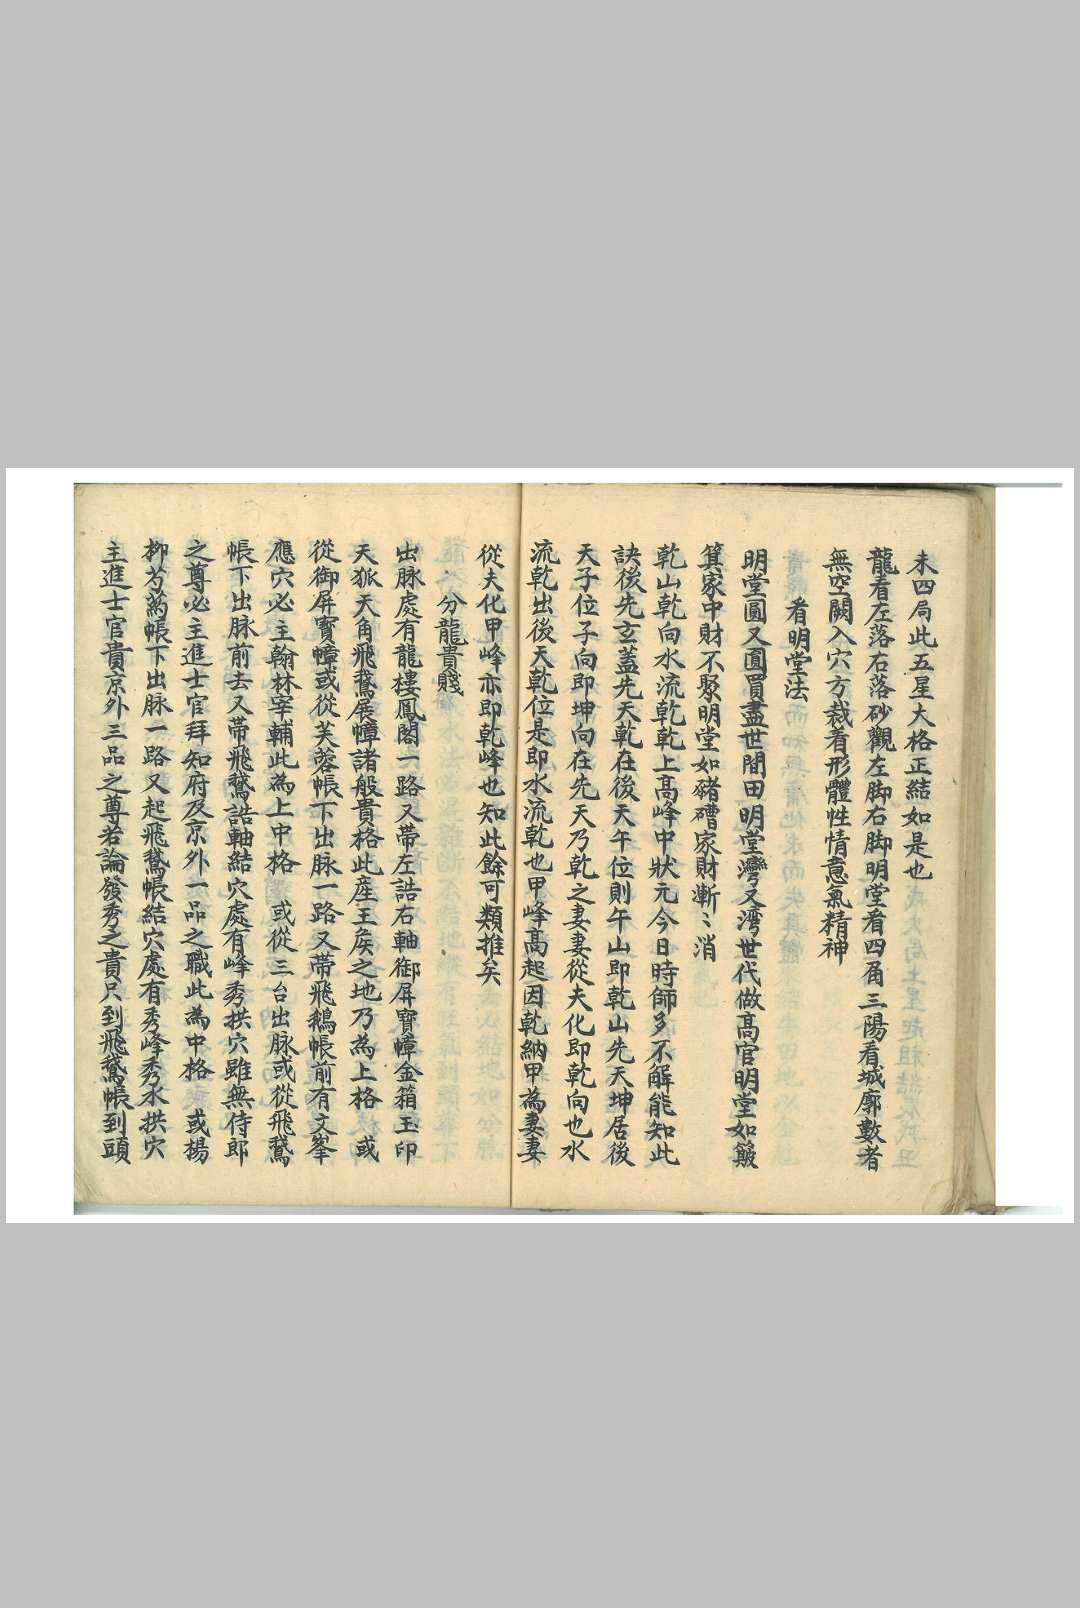 未四局此五星大格正結如是也
龍看左落右落砂觀左脚右脚明堂看四角三陽看城廓數者
無空闕入穴方裁看形體性情意氣精神
看明堂法
明堂圓又圓買盡世間田明堂灣又湾世代做高官明堂如簸
箕家中財不聚明堂如豬槽家財漸〻消
乾山乾向水流乾乾上高峰中狀元今日時師多不解能知此
訣後先玄蓋先天乾在後天午位則午山即乾山先天坤居後
天子位子向即坤向在先天乃乾之妻妻從夫化即乾向也水
流乾出後天乾位是即水流乾也甲峰高起因乾納甲為妻妻
從夫化甲峰亦即乾峰也知此餘可類推矣
分龍貴賤
出脉處有龍樓鳳閣一路又帶左誥右軸御屏寶幛金箱玉印
天狐天角飛鵞展幛諸般貴格此産王矦之地乃為上格 或
從御屏寶幛或從芙蓉帳下出脉一路又帶飛鵝帳前有文峯
應穴必主翰林宰輔此為上中格 或從三台出脉或從飛鵞
帳下出脉前去又帶飛鵞誥軸結穴處有峰秀拱穴雖無侍郎
之尊必主進士官拜知府及京外一品之職此為中格 或楊
柳芍葯帳下出脉一路又起飛鵞帳結穴處有秀峰秀水拱穴
主進士官貴京外三品之尊若論發秀之貴只到飛鵞帳到頭